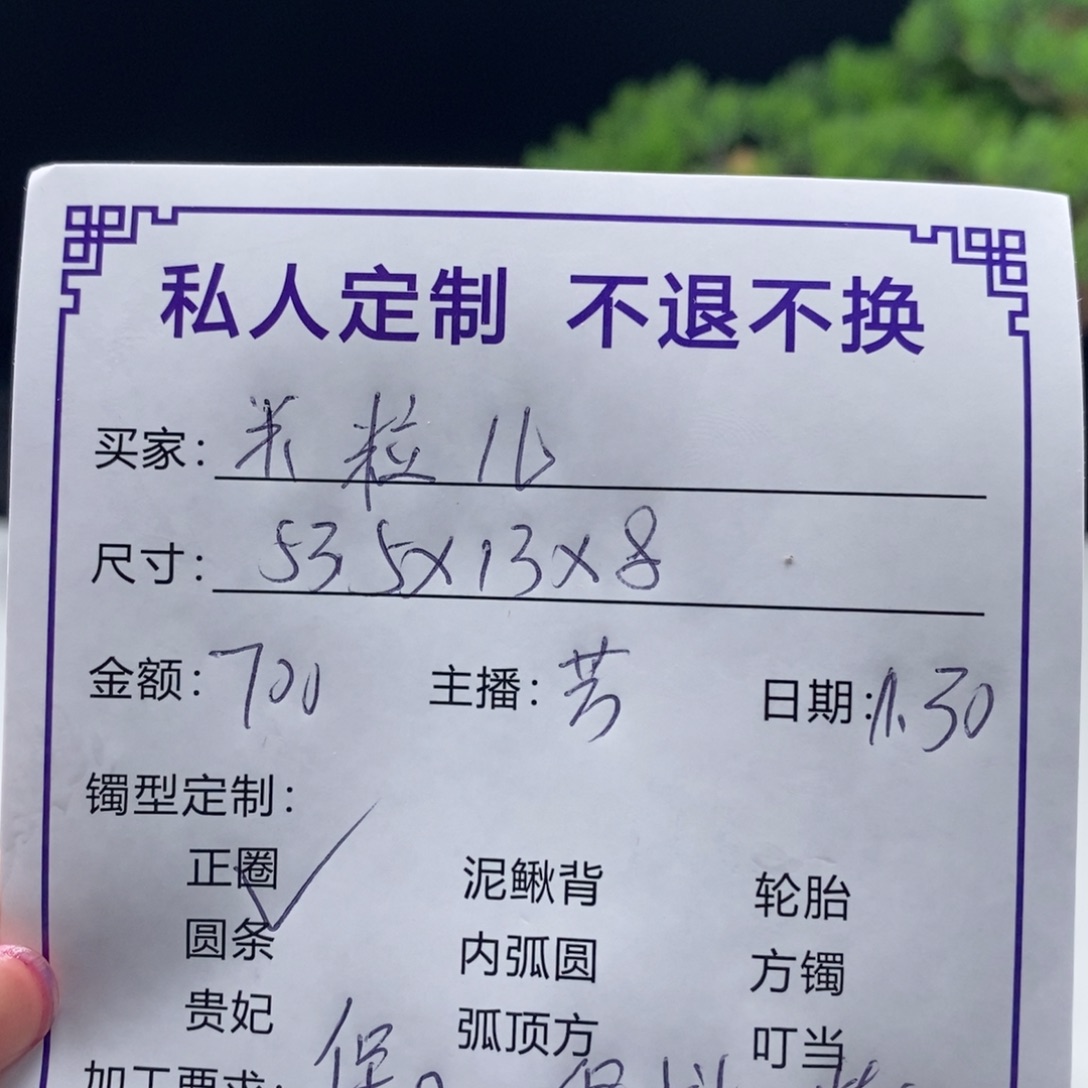 私人定制 不退不换
买家：米粒儿
尺寸：53.5x13x8
金额：700 主播：芳 日期：11.30
镯型定制：
正圈 泥鳅背 轮胎
圆条 内弧圆 方镯
贵妃 弧顶方 叮当
加工要求：保